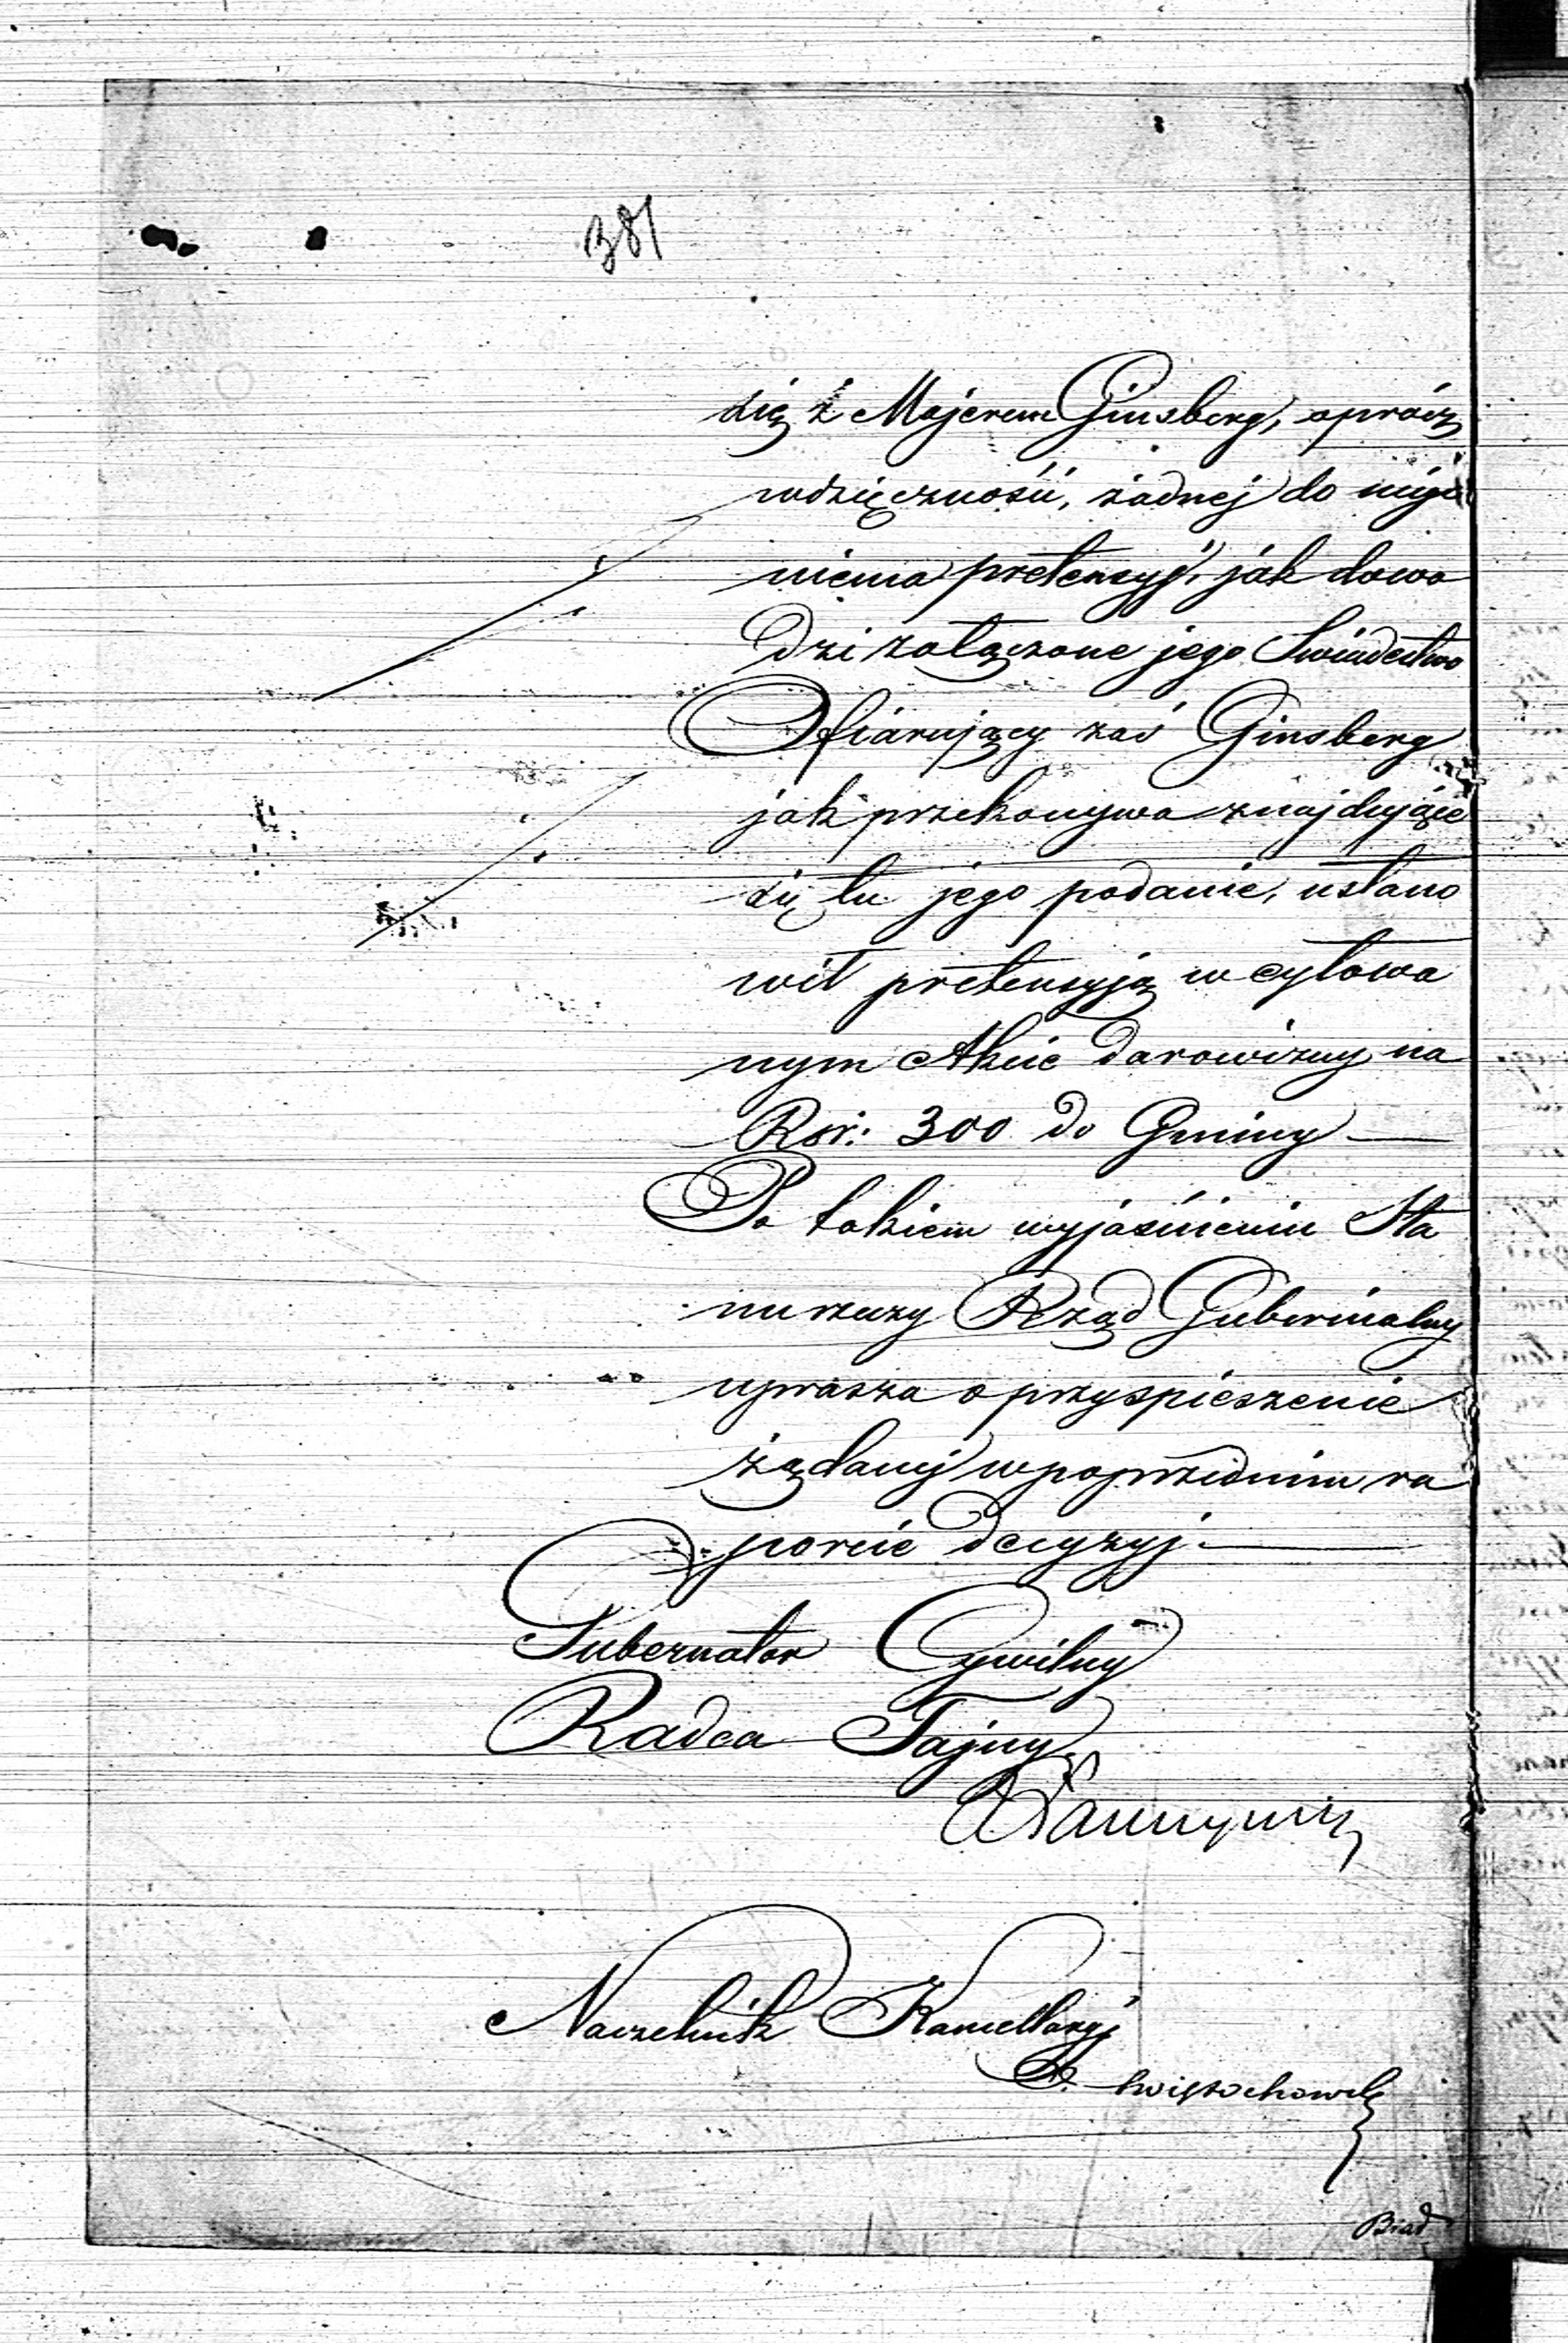 381
się z Majerem Ginsberg, oprócz
wdzięczności, żadnej do niego
niema pretensyi, jak dowo
dzi załączone jego Świadectwo
Ofiarujący zaś Ginsberg
jak przekonywa znajdujące
się tu jego podanie, ustano
wił pretensyją w cytowa
nym Akcie darowizny na
Rsr: 300 do Gminy —
Po takiem wyjaśnieniu Sta
nu rzeczy Rząd Gubernialny
uprasza o przyspieszenie
żądanej w poprzednim ra
porcie decyzyj. —
Gubernator Cywilny
Radca Tajny
Naczelnik Kancellaryj
Świętochowski